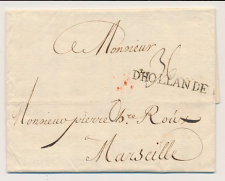 a Monsieur
36
D'HOLLANDE
Monsieur pierre Hre Roux
Marseille